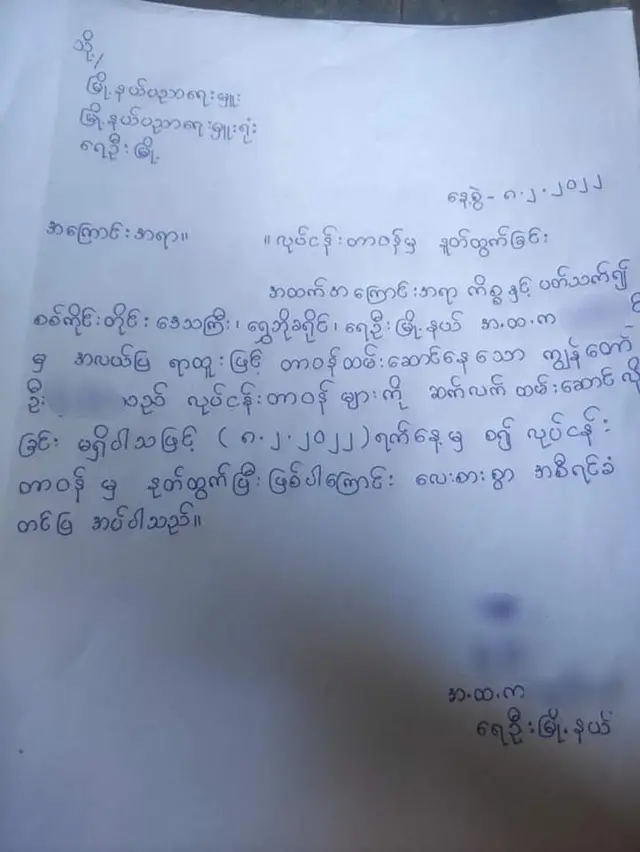 သို့/
မြို့နယ်ပညာရေးမှူး
မြို့နယ်ပညာရေးမှူးရုံး
ရေဦးမြို့
နေ့စွဲ - ၈.၂.၂၀၂၂
အကြောင်းအရာ။ ။လုပ်ငန်းတာဝန်မှ နုတ်ထွက်ခြင်း
အထက်အကြောင်းအရာ ကိစ္စနှင့် ပတ်သက်၍
စစ်ကိုင်းတိုင်းဒေသကြီး၊ ရွှေဘိုခရိုင်၊ ရေဦးမြို့နယ် အ.ထ.က
မှ အလယ်ပြ ရာထူးဖြင့် တာဝန်ထမ်းဆောင်နေသော ကျွန်တော်
ဦး သည် လုပ်ငန်းတာဝန်များကို ဆက်လက်ထမ်းဆောင်လို
ခြင်း မရှိပါသဖြင့် (၈.၂.၂၀၂၂) ရက်နေ့မှ စ၍ လုပ်ငန်း
တာဝန်မှ နုတ်ထွက်ပြီးဖြစ်ပါကြောင်း လေးစားစွာ အစီရင်ခံ
တင်ပြ အပ်ပါသည်။
အ.ထ.က
ရေဦးမြို့နယ်